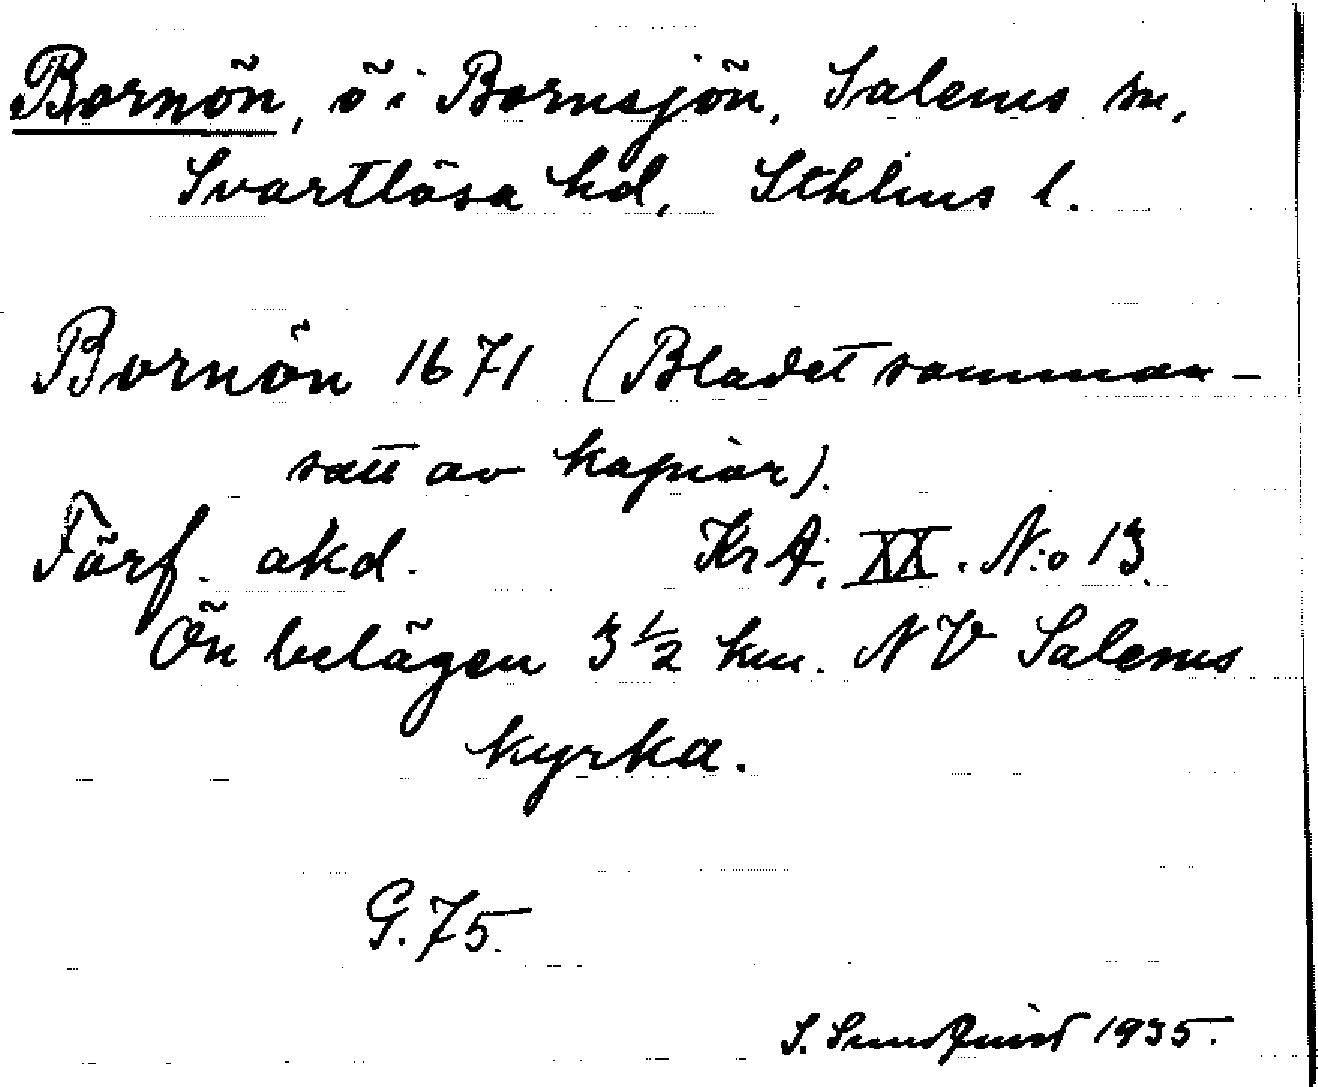 Bornön, ö i Bornsjön, Salems sn,
Svartlösa hd, Sthlms l.
Bornön 1671 (Bladet samman-
satt av kopior).
Förf. okd. Kr A: XX. N:o 13.
Ön belägen 3 1/2 km. NV Salems
kyrka.
G. 75.
S. Sundquist 1935.